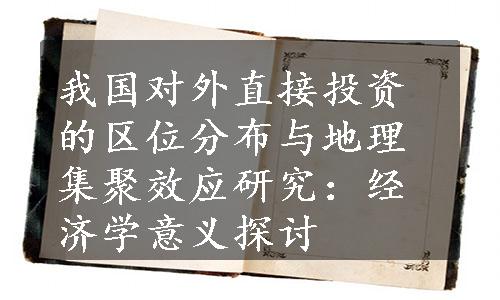 我国对外直接投资
的区位分布与地理
集聚效应研究：经
济学意义探讨